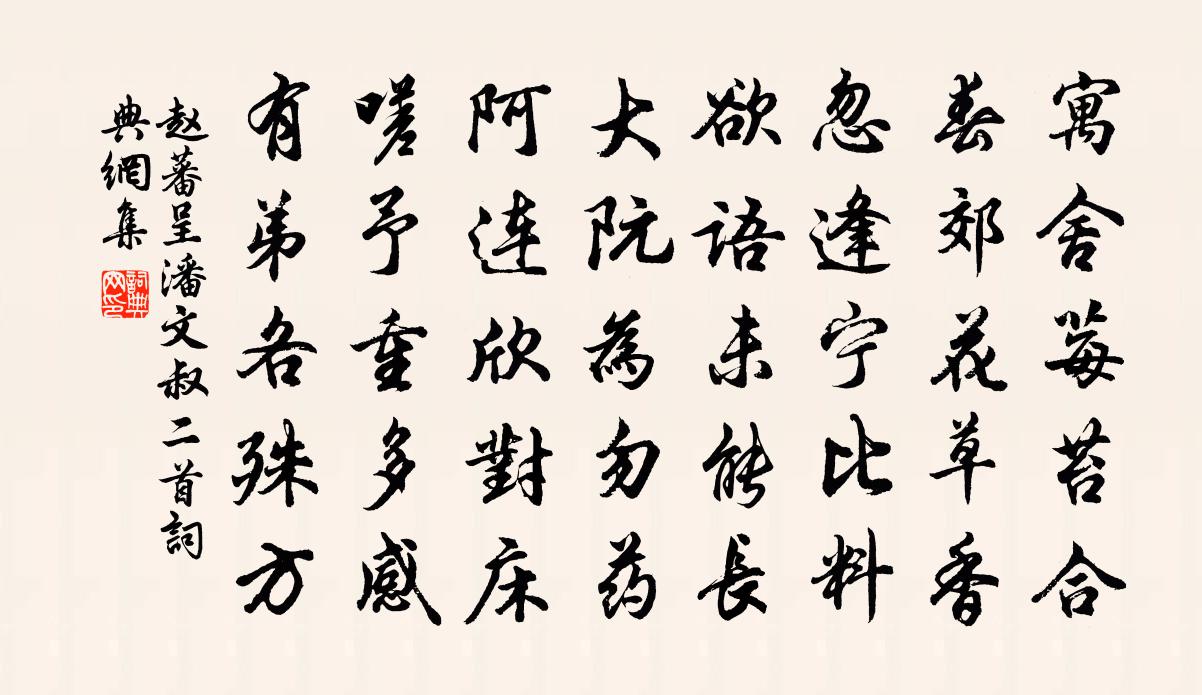 寓舍莓苔合
春郊花草香
忽逢宁比料
欲语未能長
大阮為勿药
阿连欣對床
嗟予重多感
有弟各殊方
赵蕃呈潘文叔二首詞
典網集
詞典
网印